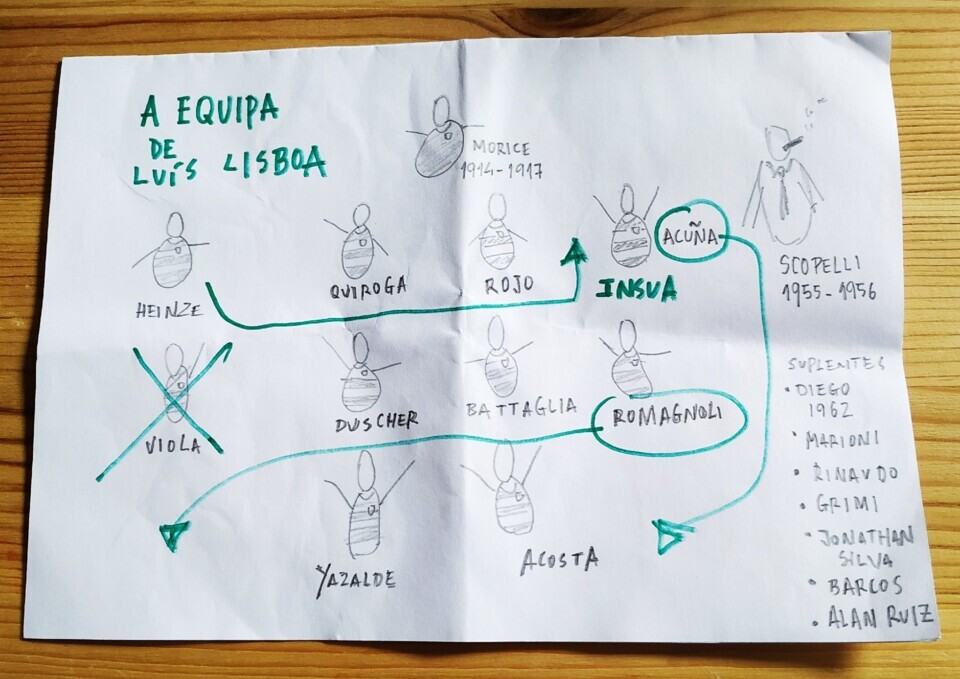 A EQUIPA
DE
LUÍS LISBOA
MORICE
1914-1917
HEINZE
QUIROGA
ROJO
INSUA
ACUÑA
SCOPELLI
1955-1956
VIOLA
DUSCHER
BATTAGLIA
ROMAGNOLI
YAZALDE
ACOSTA
SUPLENTES
• DIEGO
1962
• MARIONI
• RINAUDO
• GRIMI
• JONATHAN
SILVA
• BARCOS
• ALAN RUIZ